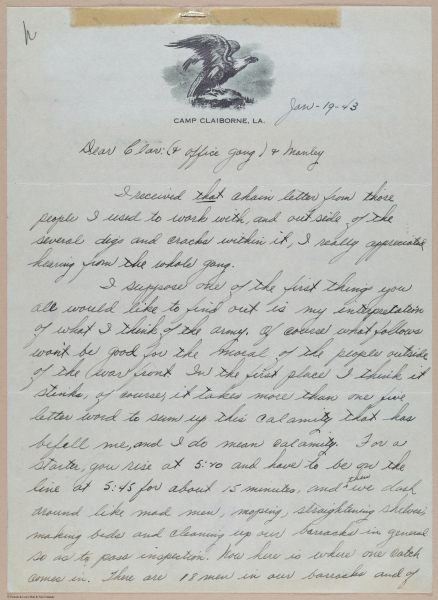 CAMP CLAIBORNE, LA.
Jan-19-43
Dear Clar: (& office gang) & Manley
I received that chain letter from those
people I used to work with, and outside of the
several digs and cracks within it, I really appreciated
hearing from the whole gang.
I suppose one of the first things you
all would like to find out is my interpretation
of what I think of the army. Of course what follows
won't be good for the moral of the people outside
of the war front. In the first place I think it
stinks, of course, it takes more than one five
letter word to sum up this calamity that has
befell me, and I do mean calamity. For a
starter, you rise at 5:20 and have to be on the
line at 5:45 for about 15 minutes, and then we dash
around like mad men, moping, straightening shelves,
making beds and cleaning up our barracks in general
so as to pass inspection. Now here is where one catch
comes in. There are 18 men in our barracks and of